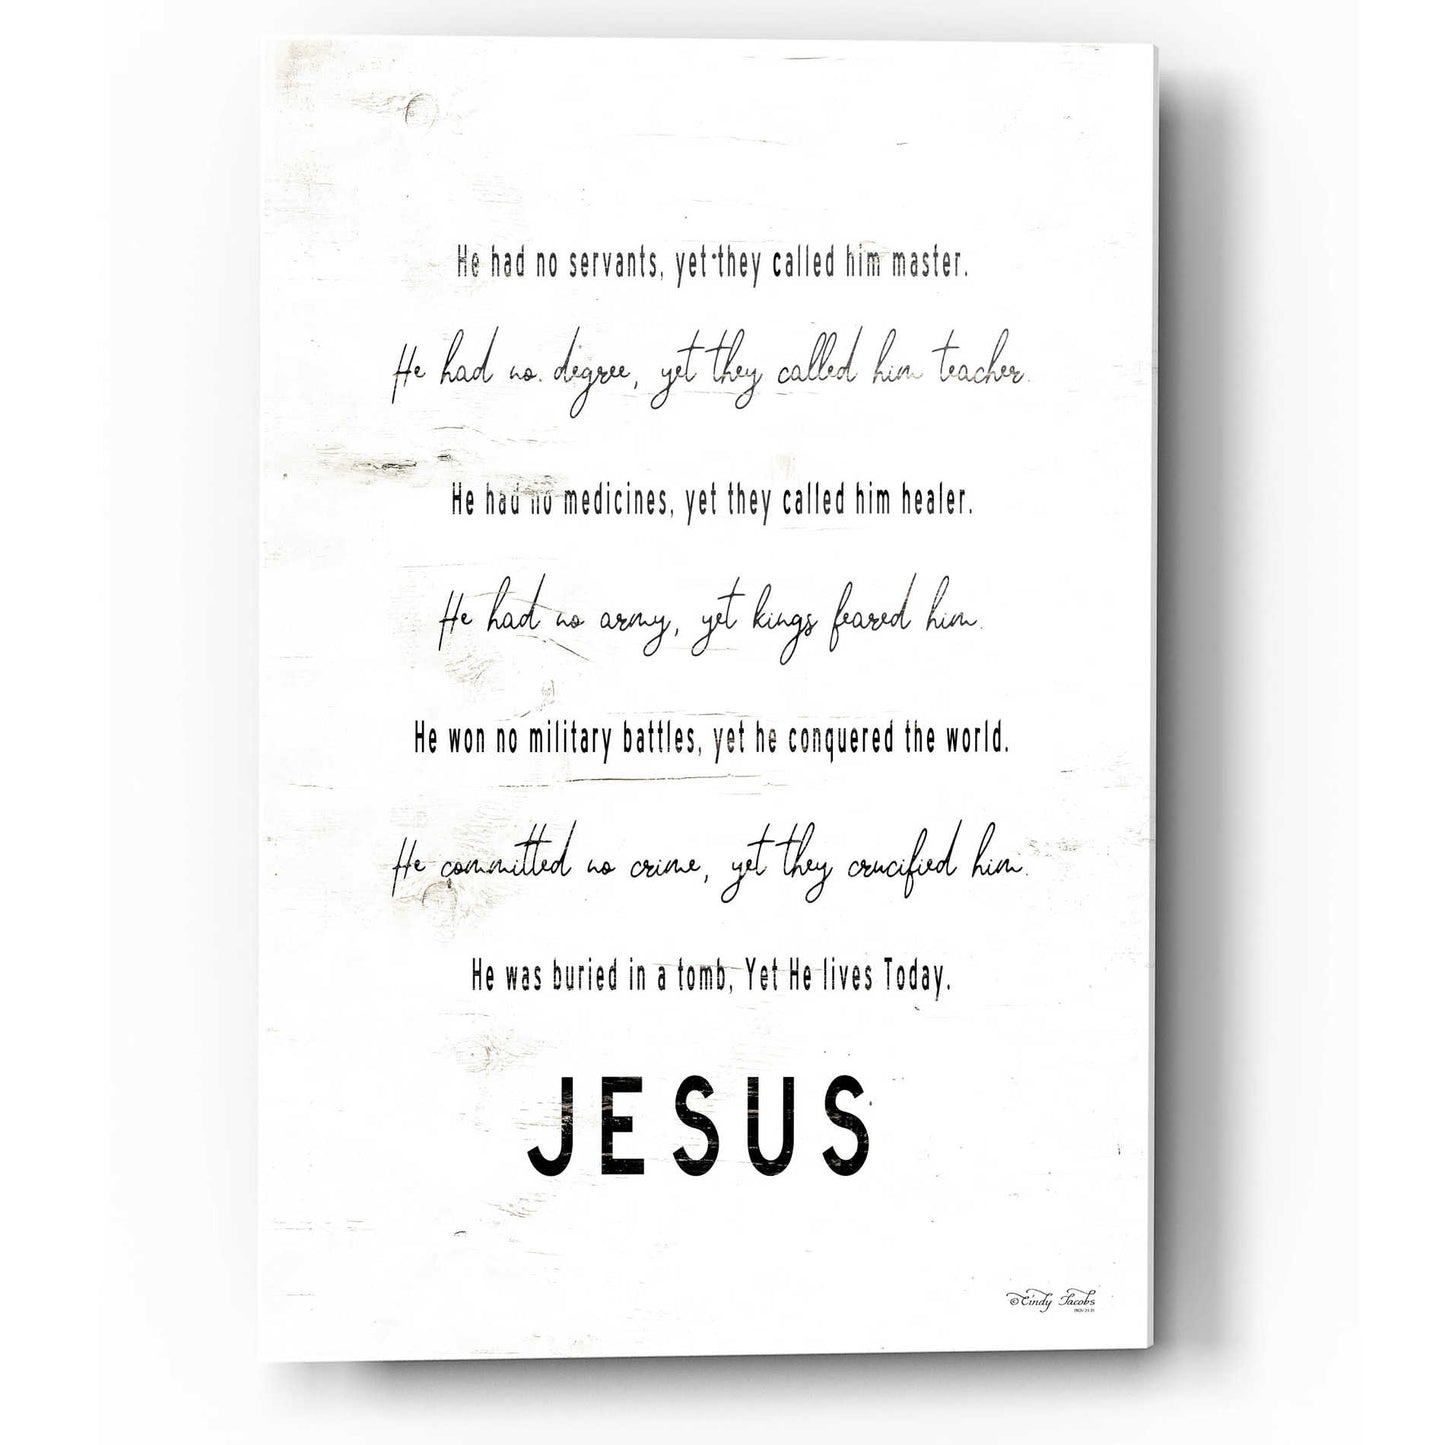 He had no servants, yet they called him master.
He had no degree, yet they called him teacher.
He had no medicines, yet they called him healer.
He had no army, yet kings feared him.
He won no military battles, yet he conquered the world.
He committed no crime, yet they crucified him.
He was buried in a tomb, Yet He lives Today.
JESUS
©Cindy Jacobs